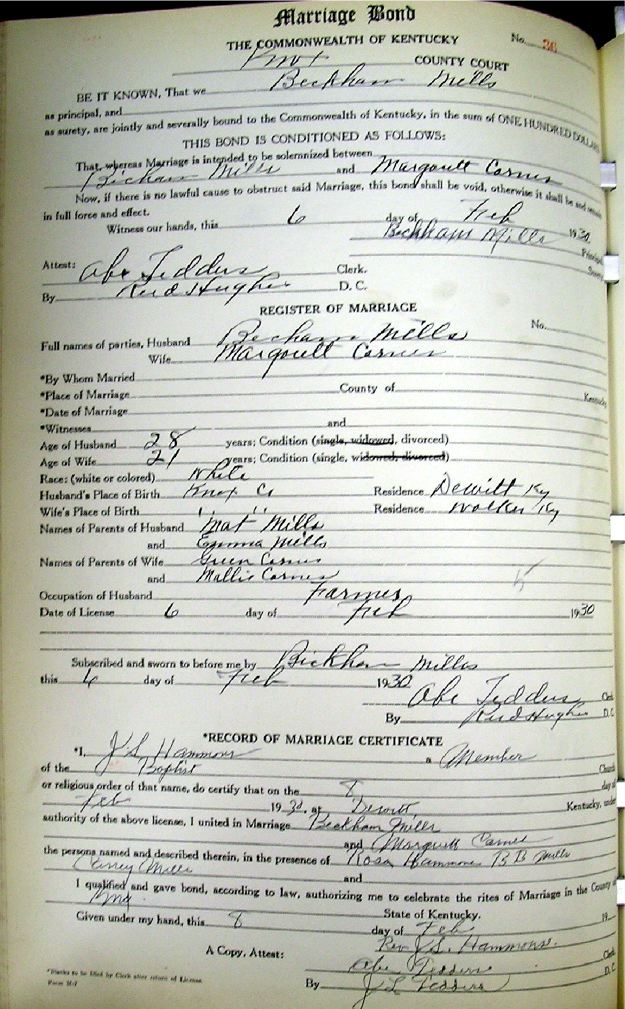 Marriage Bond
No. 36
THE COMMONWEALTH OF KENTUCKY
Knox COUNTY COURT
BE IT KNOWN, That we Beckham Mills
as principal, and
as surety, are jointly and severally bound to the Commonwealth of Kentucky, in the sum of ONE HUNDRED DOLLARS
THIS BOND IS CONDITIONED AS FOLLOWS:
That, whereas Marriage is intended to be solemnized between
Bickham Mills and Margarett Carnes
Now, if there is no lawful cause to obstruct said Marriage, this bond shall be void, otherwise it shall be and remain
in full force and effect.
Witness our hands, this 6 day of Feb 1930
Beckham Mills Principal
Surety
Attest: Abe Tedders Clerk.
By Reid Hughes D. C.
REGISTER OF MARRIAGE
No.
Full names of parties, Husband Becham Mills
Wife Margarett Carnes
*By Whom Married
*Place of Marriage County of Kentucky
*Date of Marriage
*Witnesses and
Age of Husband 28 years; Condition (single, widowed, divorced)
Age of Wife 21 years; Condition (single, widowed, divorced)
Race: (white or colored) White
Husband's Place of Birth Knox Co Residence Dewitt Ky
Wife's Place of Birth " " Residence Walker Ky
Names of Parents of Husband Mat Mills
and Emma Mills
Names of Parents of Wife Green Carnes
and Mallie Carnes
Occupation of Husband Farmer
Date of License 6 day of Feb 1930
Subscribed and sworn to before me by Bickham Mills
this 6 day of Feb 1930
Abe Tedders Clerk
By Reid Hughes D. C.
*RECORD OF MARRIAGE CERTIFICATE
*I, J. S. Hammons a Member
of the Baptist Church
or religious order of that name, do certify that on the 8 day of
Feb 1930, at Dewitt Kentucky, under
authority of the above license, I united in Marriage Beckham Mills
and Margarett Carnes
the persons named and described therein, in the presence of Rosa Hammons B B Mills
Mills and
I qualified and gave bond, according to law, authorizing me to celebrate the rites of Marriage in the County of
State of Kentucky.
Given under my hand, this 8 day of Feb 19
Rev. J. S. Hammons.
A Copy, Attest: Abe Tedders Clerk
By J L Tedders D. C.
*Blanks to be filled by Clerk after return of License.
Form M-7